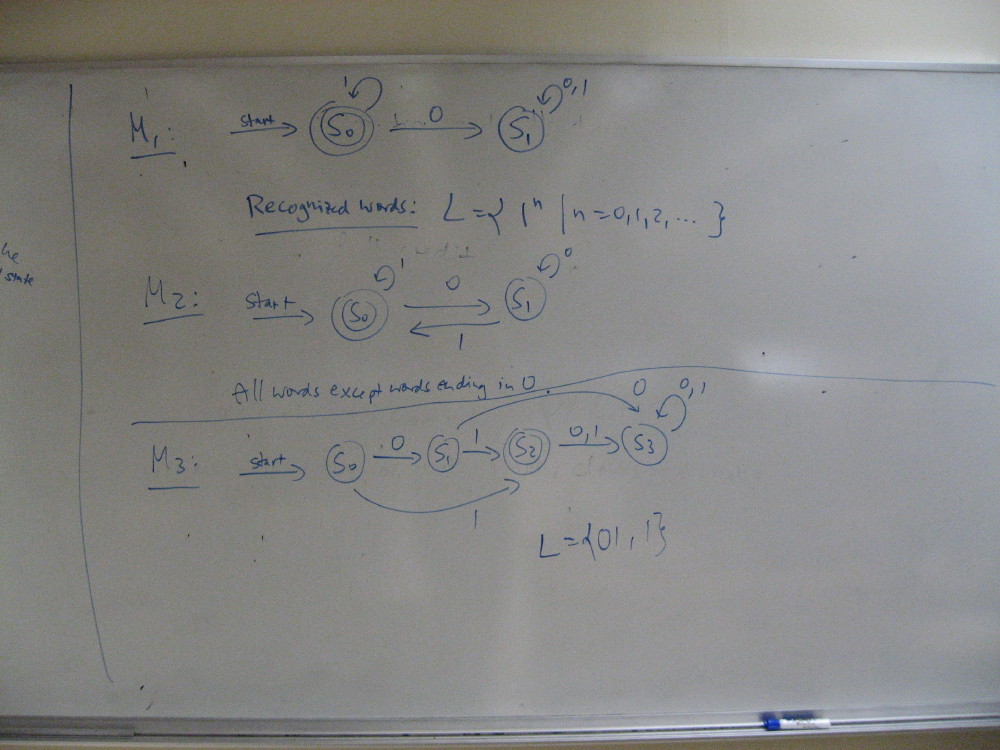 M₁: start S₀ 1 0 S₁ 0,1
Recognized words: L = { 1ⁿ | n = 0,1,2, ... }
he
state
M₂: start S₀ 1 0 1 S₁ 0
All words except words ending in 0.
M₃: start S₀ 0 S₁ 1 S₂ 0,1 S₃ 0,1
0
1
L = {01, 1}